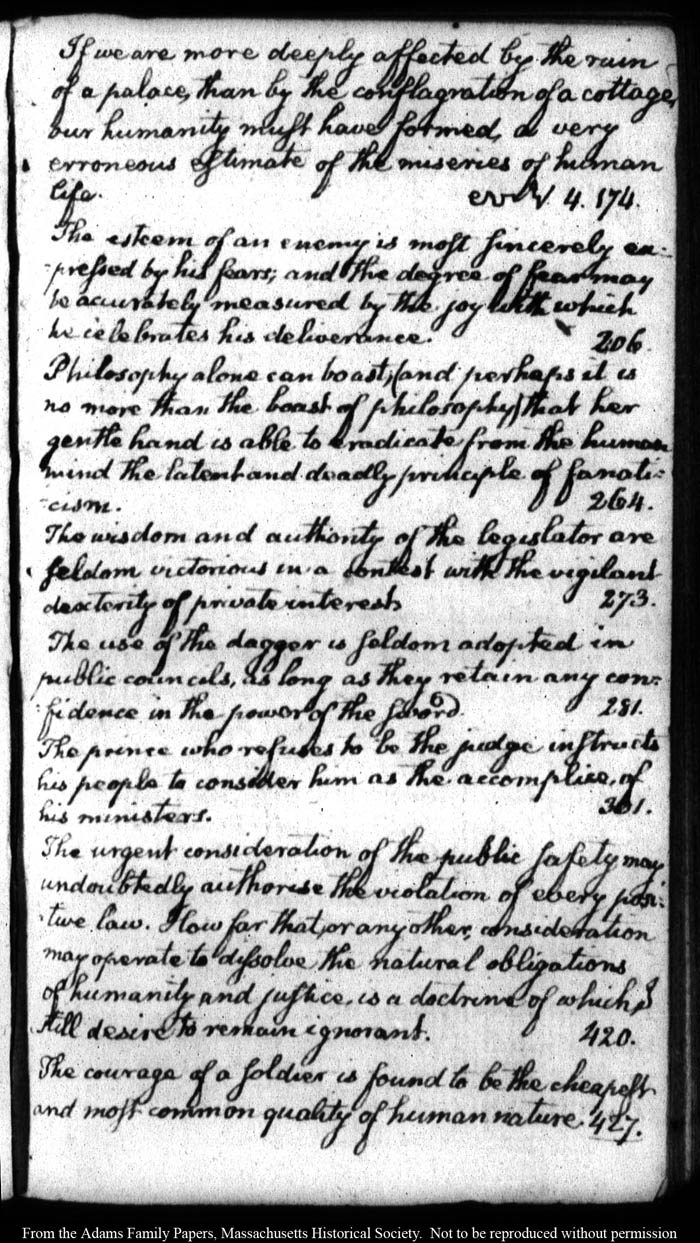 If we are more deeply affected by the ruin
of a palace, than by the conflagration of a cottage,
our humanity must have formed, a very
erroneous estimate of the miseries of human
life. 4. 174.
The esteem of an enemy is most sincerely ex-
-pressed by his fears; and the degree of fear may
be accurately measured by the joy with which
he celebrates his deliverance. 206.
Philosophy alone can boast, (and perhaps it is
no more than the boast of philosophy) that her
gentle hand is able to eradicate from the human
mind the latent and deadly principle of fanati-
-cism. 264.
The wisdom and authority of the legislator are
seldom victorious in a contest with the vigilant
dexterity of private interest 273.
The use of the dagger is seldom adopted in
public councils, as long as they retain any con-
-fidence in the power of the sword. 281.
The prince who refuses to be the judge instructs
his people to consider him as the accomplice, of
his ministers. 301.
The urgent consideration of the public safety may
undoubtedly authorise the violation of every posi-
-tive law. How far that, or any other, consideration
may operate to dissolve the natural obligations
of humanity and justice, is a doctrine of which, I
still desire to remain ignorant. 420.
The courage of a soldier is found to be the cheapest
and most common quality of human nature. 427.
From the Adams Family Papers, Massachusetts Historical Society. Not to be reproduced without permission